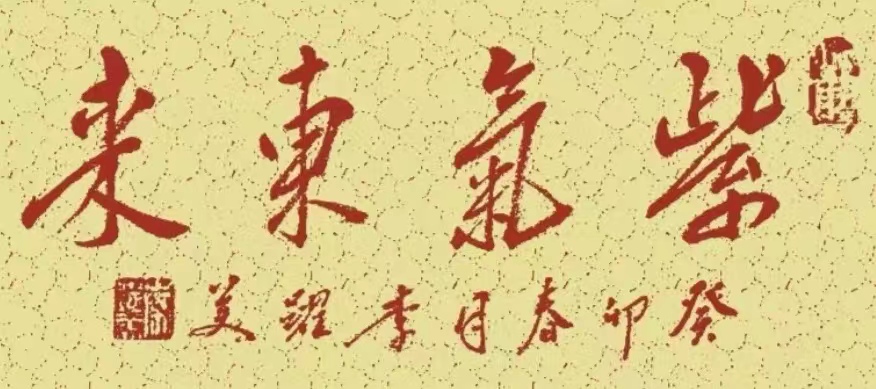 紫氣東来
癸卯春月李躍美